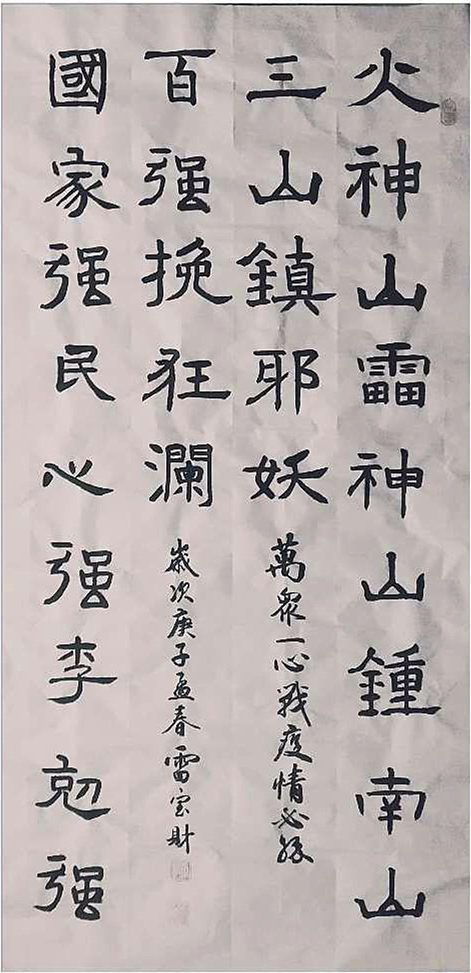 火神山靁神山鍾南山
三山鎮耶妖
萬衆一心戰疫情必勝
百强挽狂瀾
歲次庚子孟春雷宝財
國家强民心强李勀强